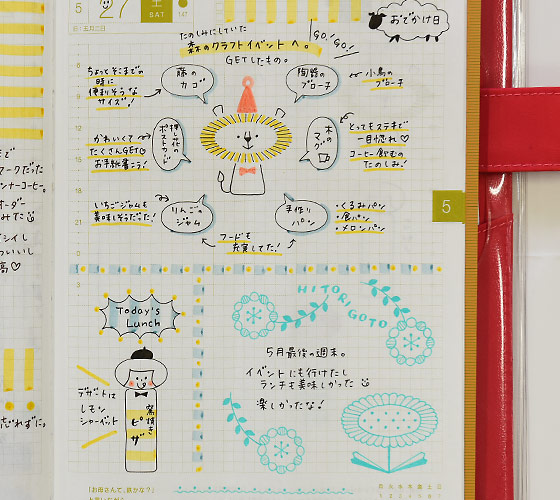 5
27
土
SAT
おでかけ日
たのしみにしていた
森のクラフトイベントへ。
GO!
GO!
GETしたもの。
ちょっとそこまでの
時に
便利そうな
サイズ!
藤の
カゴ
陶器の
ブローチ
小鳥の
ブローチ
かわいくて
たくさんGET
お手紙書こう!
押し花の
ポストカード
木の
マグ
とってもステキで
一目惚れ♡
コーヒー飲むの
たのしみ!
いちごジャムも
美味しそうだった!
りんごの
ジャム
手作り
パン
・くるみパン
・食パン
・メロンパン
フードも
充実してた!
5
Today's
Lunch
デザートは
レモン
シャーベット
窯焼き
ピザ
HITORIGOTO
5月最後の週末。
イベントにも行けたし
ランチも美味しかった
楽しかったな!